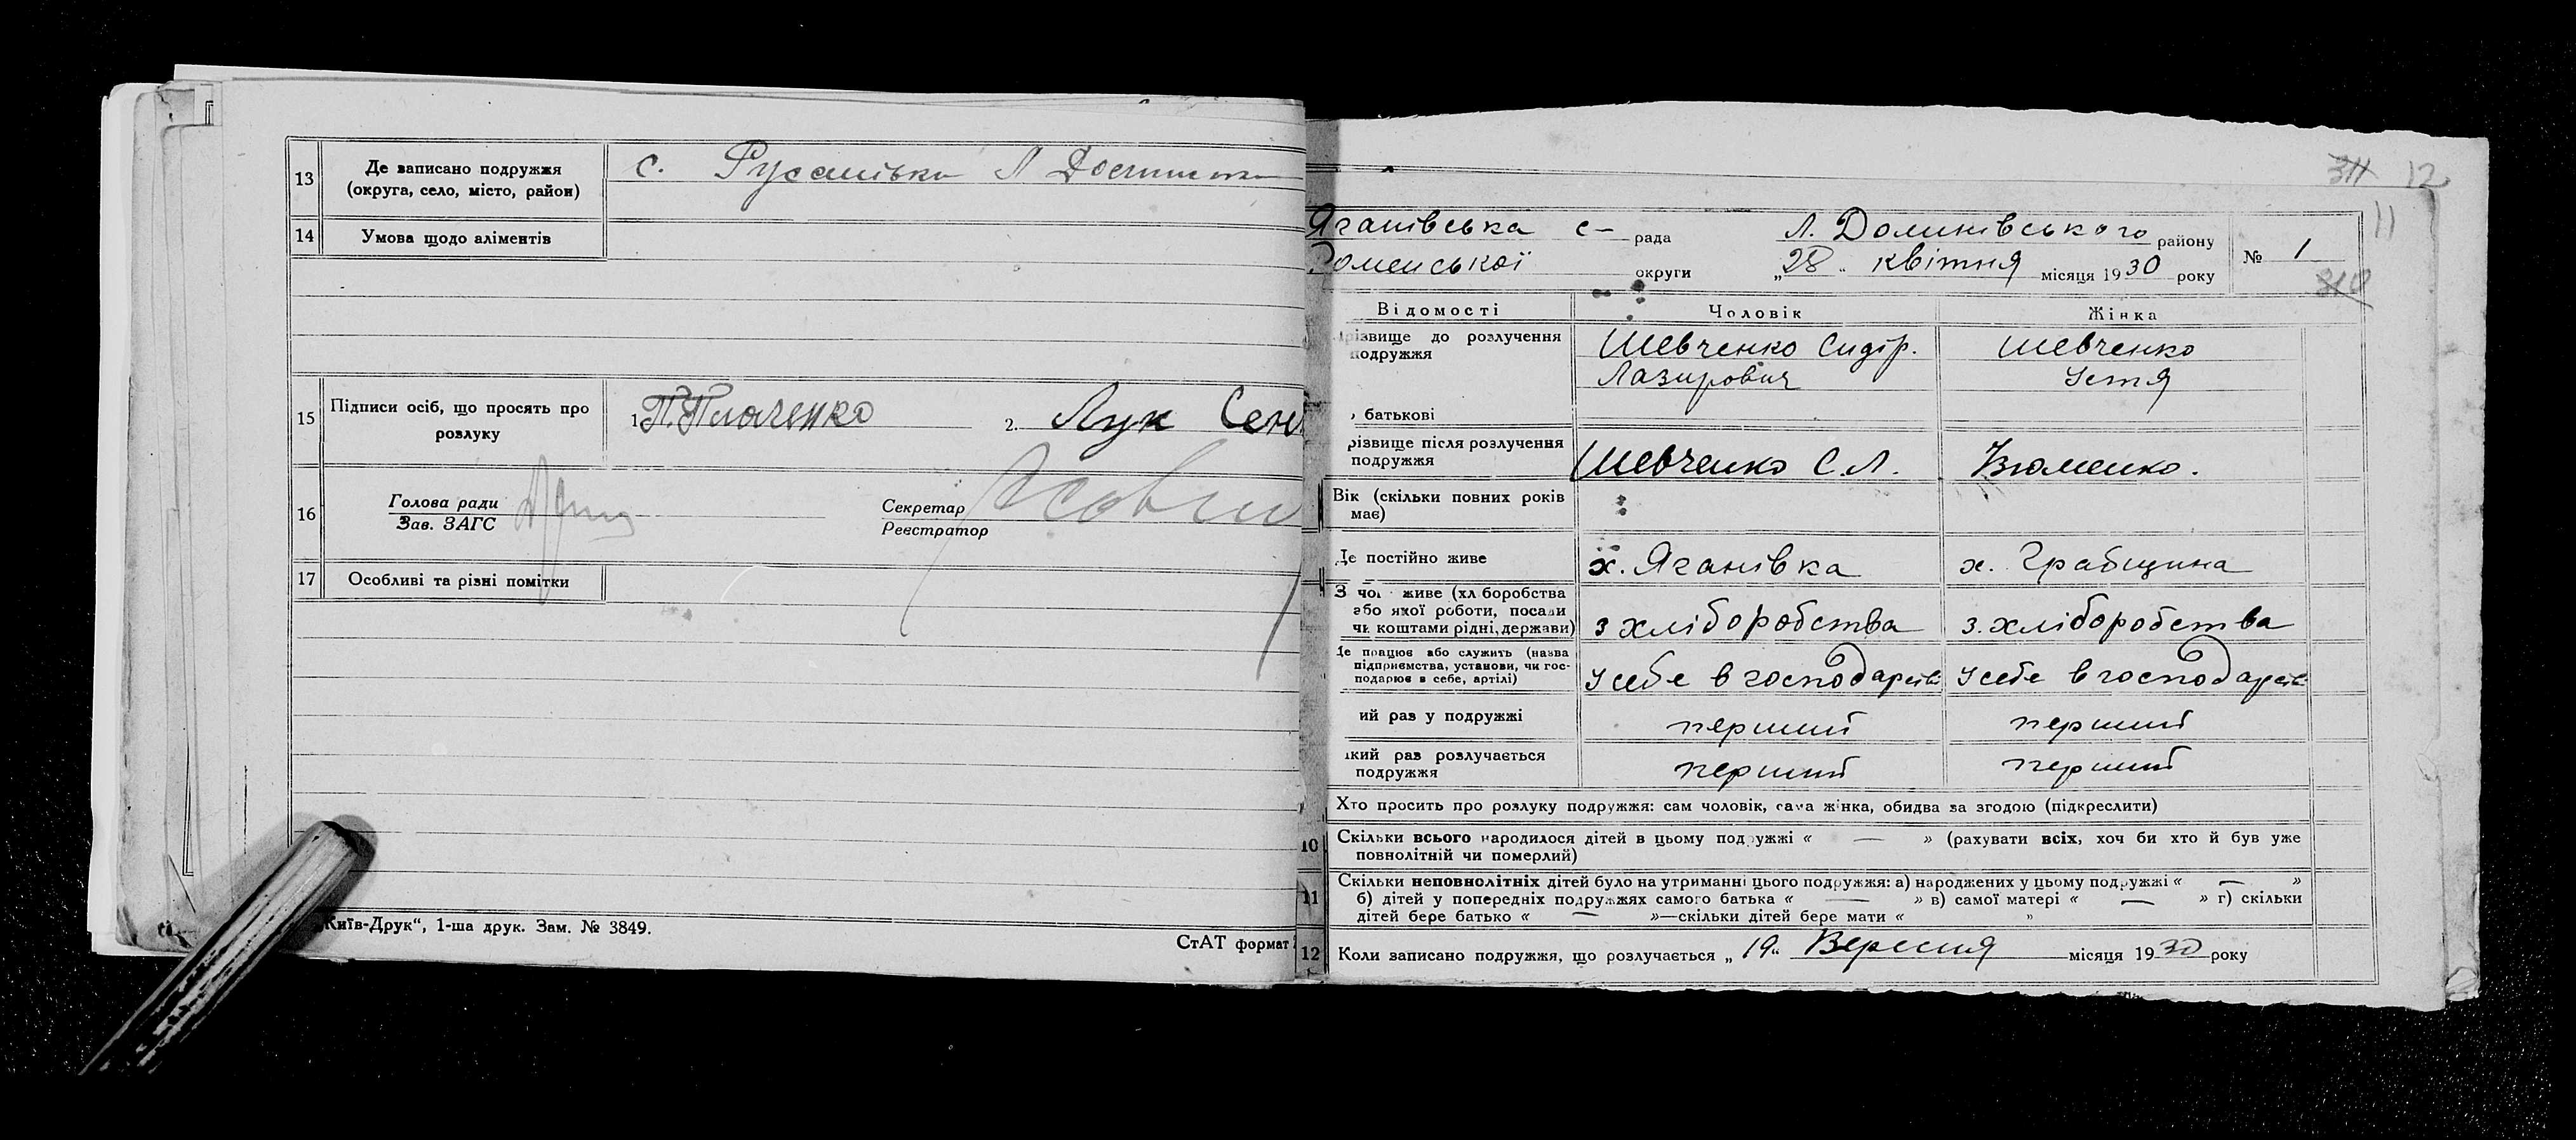 13 Де записано подружжя
(округа, село, місто, район)
с. Русанівка Л
14 Умова щодо аліментів
15 Підписи осіб, що просять про
розлуку
1. 2. Лук Сен
16 Голова ради
Зав. ЗАГС
Секретар
Реєстратор
17 Особливі та різні помітки
Київ-Друк“, 1-ша друк. Зам. № 3849.
СтАТ формат
311 12
11
Яганівська с– рада Л. Долинівського району
Роменської округи „28“ квітня місяця 1930 року
№ 1
310
Відомості Чоловік Жінка
різвище до розлучення
подружжя
Шевченко Сидір.
Лазирович
Шевченко
Устя
батькові
різвище після розлучення
подружжя
Шевченко С.Л.
Вік (скільки повних років
має)
Де постійно живе х. Яганівка х. Грабщина
З чог живе (хліборобства
або якої роботи, посади
чи коштами рідні, держави)
з хліборобства з.хліборобства
Де працює або служить (назва
підприємства, установи, чи гос-
подарює в себе, артілі)
у себе в господарств у себе в господарств
ий раз у подружжі перший перший
кий раз розлучається
подружжя
перший перший
Хто просить про розлуку подружжя: сам чоловік, сама жінка, обидва за згодою (підкреслити)
10 Скільки всього народилося дітей в цьому подружжі « — » (рахувати всіх, хоч би хто й був уже
повнолітній чи померлий)
11 Скільки неповнолітніх дітей було на утриманні цього подружжя: а) народжених у цьому подружжі « — »
б) дітей у попередніх подружжях самого батька « — » в) самої матері « — » г) скільки
дітей бере батько « — »—скільки дітей бере мати « »
12 Коли записано подружжя, що розлучається „19“ Вересня місяця 1930 року